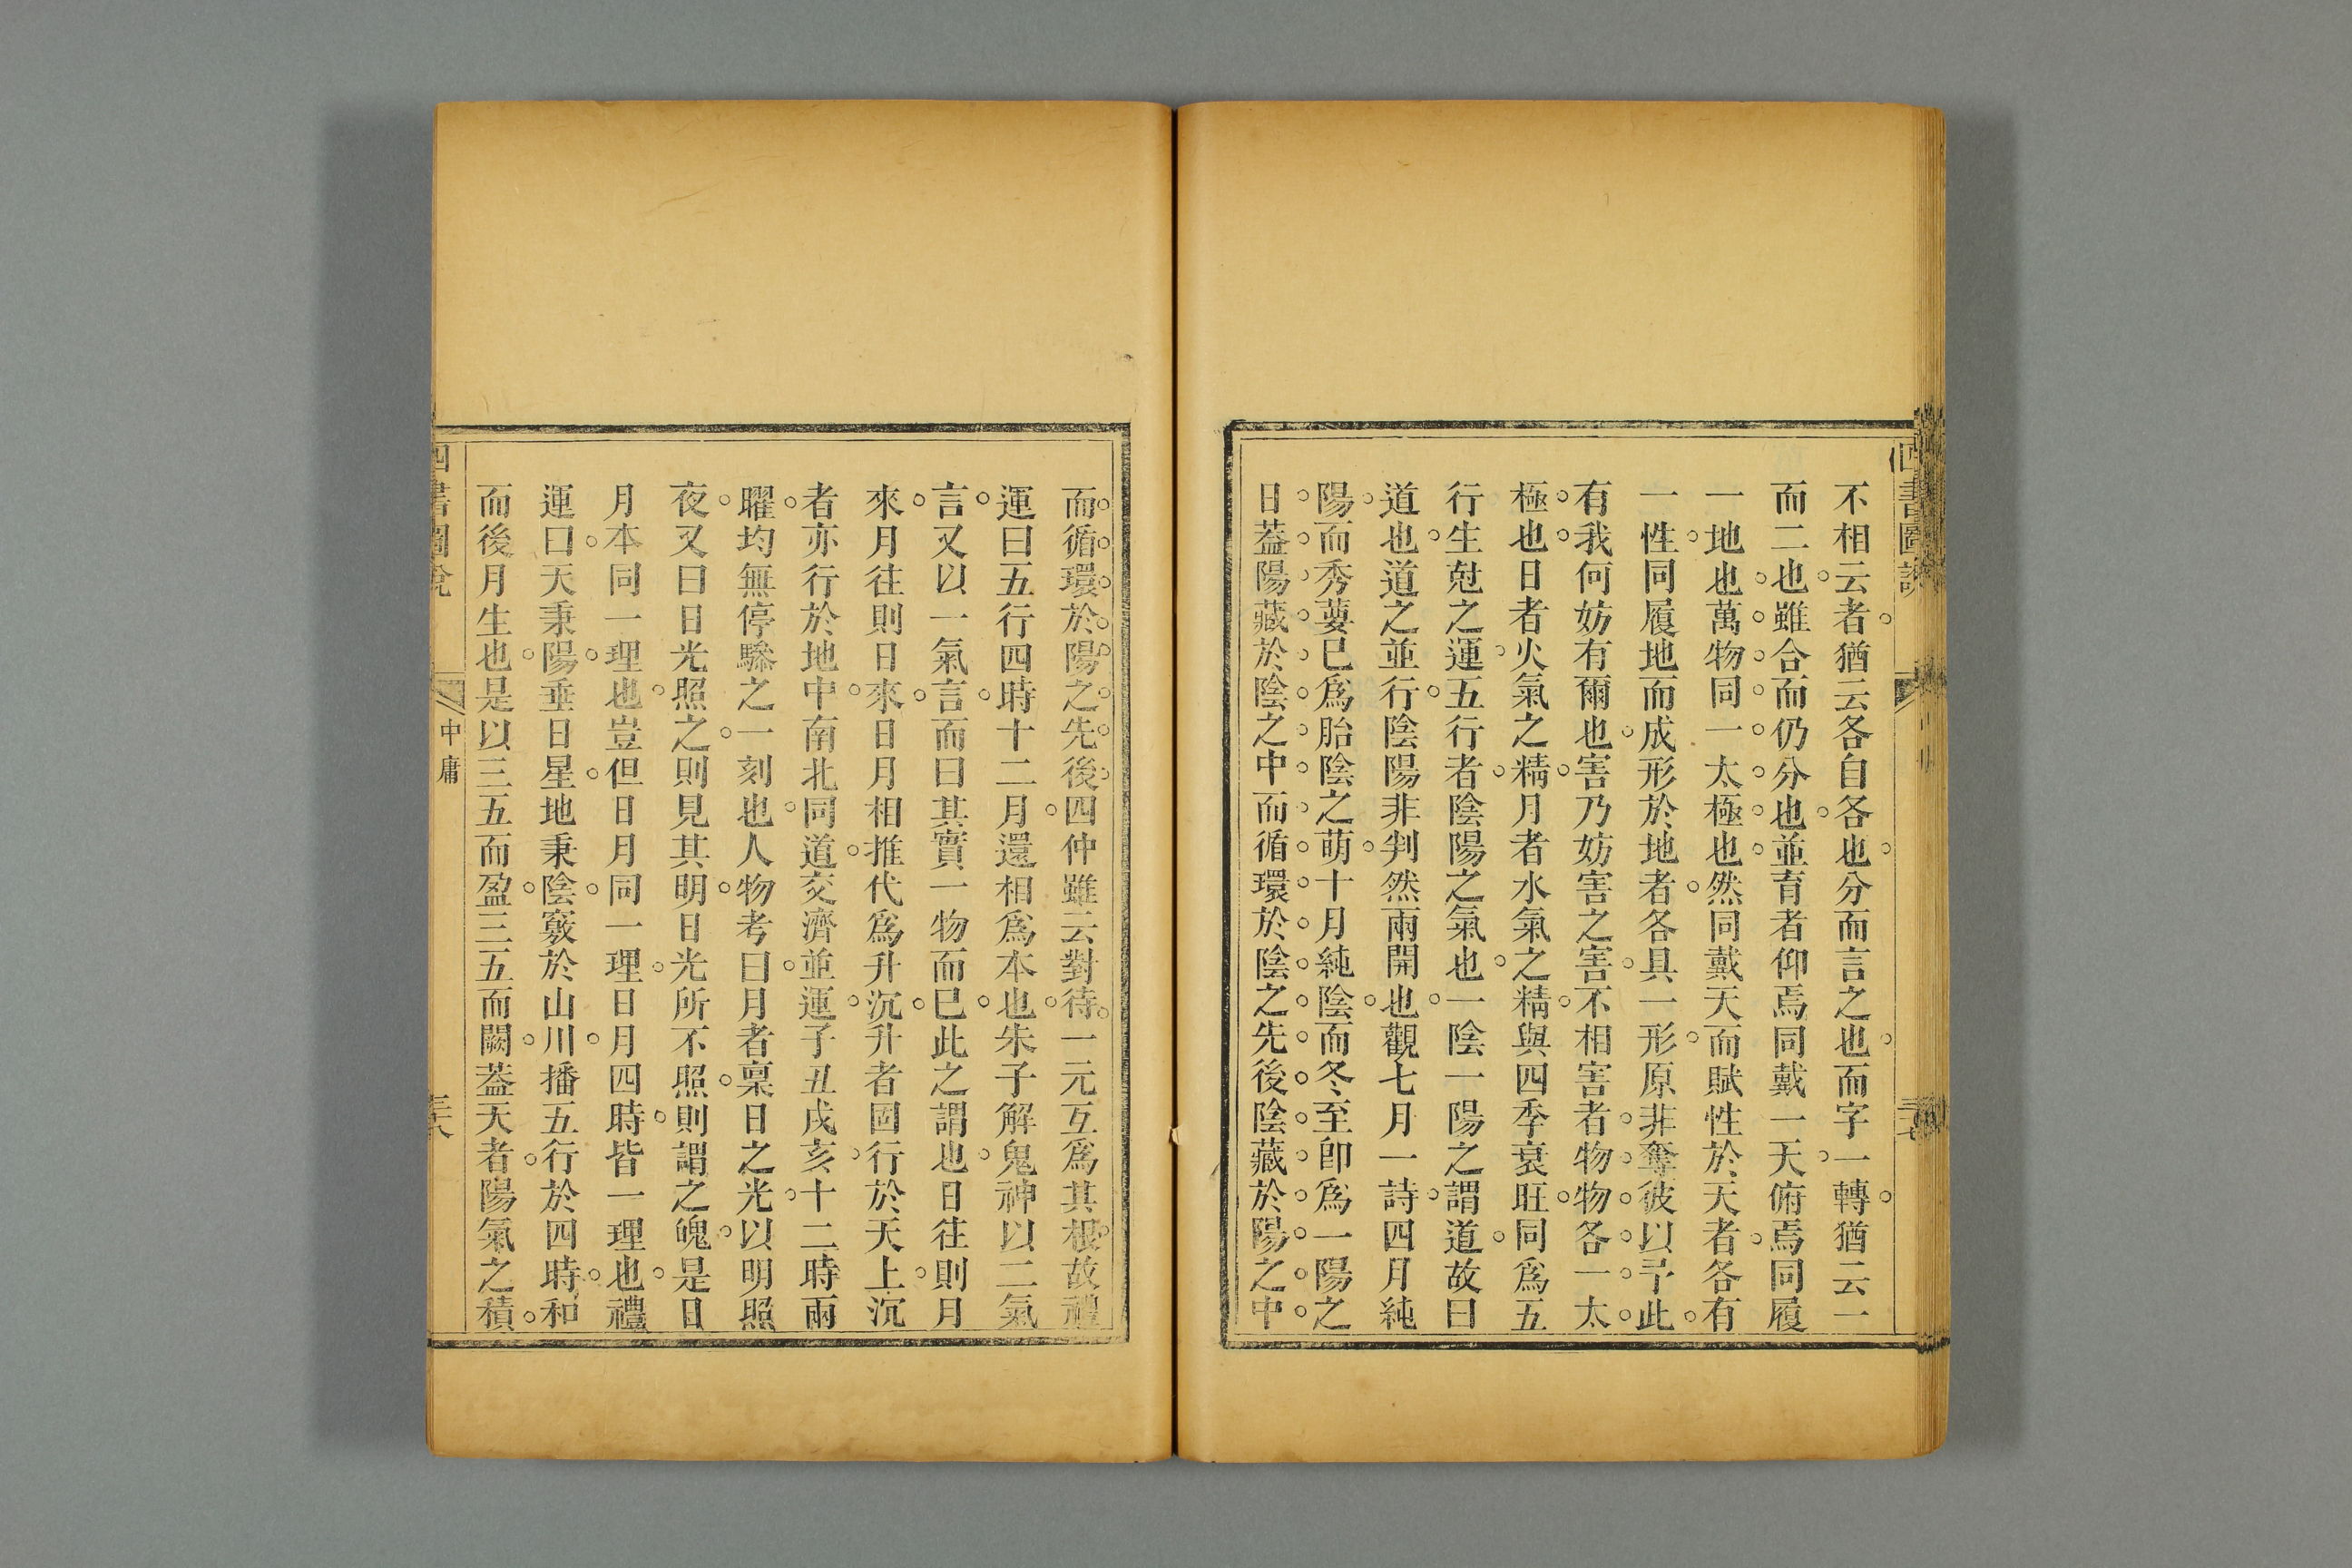 四書圖說
不相云者猶云各自各也分而言之也而字一轉猶云一
而二也雖合而仍分也並育者仰焉同戴一天俯焉同履
一地也萬物同一太極也然同戴天而賦性於天者各有
一性同履地而成形於地者各具一形原非奪彼以予此
有我何妨有爾也害乃妨害之害不相害者物物各一太
極也日者火氣之精月者水氣之精與四季衰旺同為五
行生尅之運五行者陰陽之氣也一陰一陽之謂道故曰
道也道之並行陰陽非判然兩開也觀七月一詩四月純
陽而秀葽已為胎陰之萌十月純陰而冬至卽為一陽之
日葢陽藏於陰之中而循環於陰之先後陰藏於陽之中
而循環於陽之先後四仲雖云對待一元互為其根故禮
運曰五行四時十二月還相為本也朱子解鬼神以二氣
言又以一氣言而曰其實一物而已此之謂也日往則月
來月往則日來日月相推代為升沉升者固行於天上沉
者亦行於地中南北同道交濟並運子丑戌亥十二時兩
曜均無停驂之一刻也人物考曰月者稟日之光以明照
夜又曰日光照之則見其明日光所不照則謂之魄是日
月本同一理也豈但日月同一理日月四時皆一理也禮
運曰天秉陽垂日星地秉陰竅於山川播五行於四時和
而後月生也是以三五而盈三五而闕葢天者陽氣之積
四書圖說
中庸
三十八